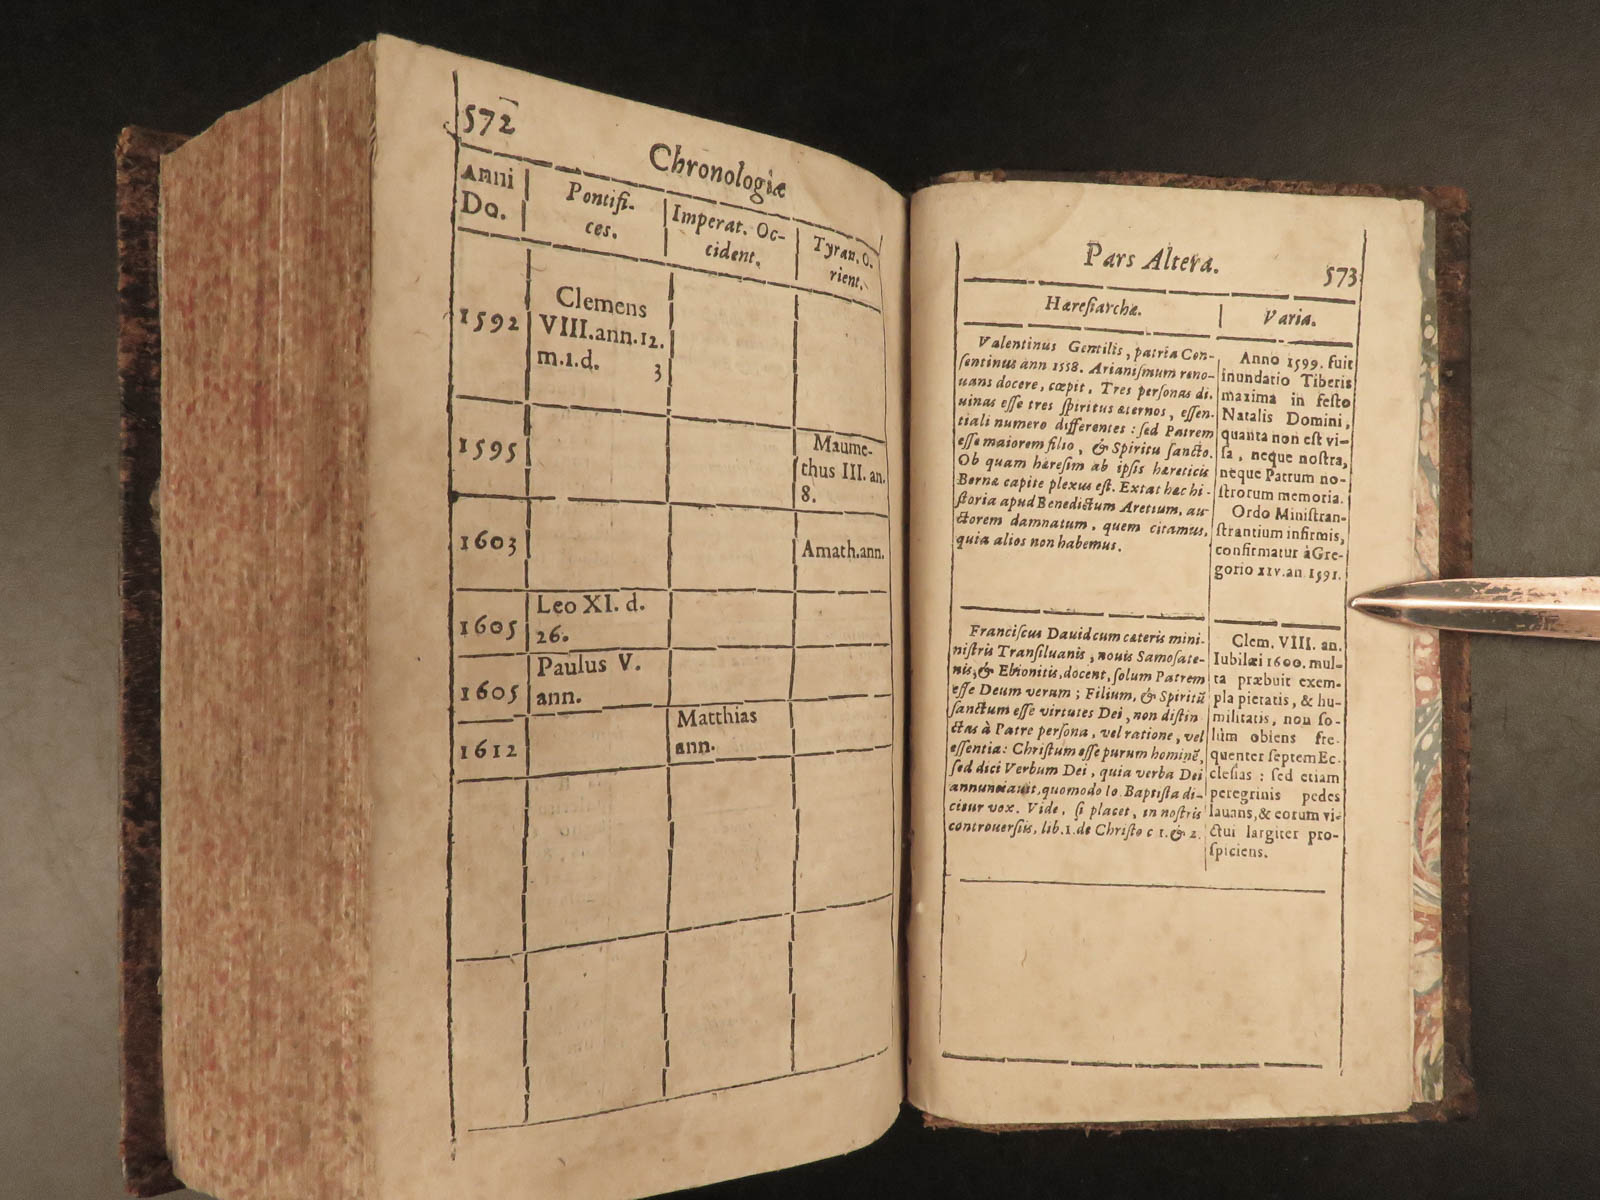 572
Chronologiæ
Anni
Do.
Pontifi-
ces.
Imperat. Oc-
cident.
Tyran. O-
rient.
1592
Clemens
VIII. ann. 12.
m. 1. d. 3
1595
Maume-
thus III. an.
8.
1603
Amath. ann.
1605
Leo XI. d.
26.
1605
Paulus V.
ann.
1612
Matthias
ann.
Pars Altera.
573
Hæreſiarchæ.
Varia.
Valentinus Gentilis, patria Con-
ſentinus ann 1558. Arianiſmum reno-
uans docere, cœpit, Tres perſonas di-
uinas eſſe tres ſpiritus æternos, eſſen-
tiali numero differentes: ſed Patrem
eſſe maiorem filio, & Spiritu ſancto.
Ob quam hæreſim ab ipſis hæreticis
Bernæ capite plexus eſt. Extat hæc hi-
ſtoria apud Benedictum Aretium, au-
ctorem damnatum, quem citamus,
quia alios non habemus.
Anno 1599. fuit
inundatio Tiberis
maxima in feſto
Natalis Domini,
quanta non eſt vi-
ſa, neque noſtra,
neque Patrum no-
ſtrorum memoria.
Ordo Miniſtran-
ſtrantium infirmis,
confirmatur à Gre-
gorio XIV. an. 1591.
Franciſcus Dauid cum cæteris mini-
niſtris Tranſiluanis, nouis Samoſate-
nis, & Ebionitis, docent, ſolum Patrem
eſſe Deum verum; Filium, & Spiritũ
ſanctum eſſe virtutes Dei, non diſtin
ctas à Patre perſona, vel ratione, vel
eſſentia: Chriſtum eſſe purum hominẽ,
ſed dici Verbum Dei, quia verba Dei
annunciauit, quomodo Io. Baptiſta di-
citur vox. Vide, ſi placet, in noſtris
controuerſiis, lib. 1. de Chriſto c 1. & 2.
Clem. VIII. an.
Iubilæi 1600. mul-
ta præbuit exem-
pla pietatis, & hu-
militatis, non ſo-
lùm obiens fre-
quenter ſeptem Ec-
cleſias: ſed etiam
peregrinis pedes
lauans, & eorum vi-
ctui largiter pro-
ſpiciens.